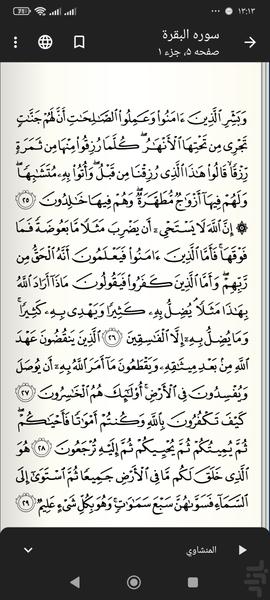 71 ۱۳:۱۳
سوره البقرة
صفحه ۵، جزء ۱
وَبَشِّرِ الَّذِينَ ءَامَنُوا وَعَمِلُوا الصَّالِحَاتِ أَنَّ لَهُمْ جَنَّاتٍ
تَجْرِي مِن تَحْتِهَا الْأَنْهَارُ كُلَّمَا رُزِقُوا مِنْهَا مِن ثَمَرَةٍ
رِّزْقًا قَالُوا هَذَا الَّذِي رُزِقْنَا مِن قَبْلُ وَأُتُوا بِهِ مُتَشَابِهًا
وَلَهُمْ فِيهَا أَزْوَاجٌ مُّطَهَّرَةٌ وَهُمْ فِيهَا خَالِدُونَ ٢٥
۞ إِنَّ اللَّهَ لَا يَسْتَحْيِ أَن يَضْرِبَ مَثَلًا مَّا بَعُوضَةً فَمَا
فَوْقَهَا فَأَمَّا الَّذِينَ ءَامَنُوا فَيَعْلَمُونَ أَنَّهُ الْحَقُّ مِن
رَّبِّهِمْ وَأَمَّا الَّذِينَ كَفَرُوا فَيَقُولُونَ مَاذَا أَرَادَ اللَّهُ
بِهَذَا مَثَلًا يُضِلُّ بِهِ كَثِيرًا وَيَهْدِي بِهِ كَثِيرًا
وَمَا يُضِلُّ بِهِ إِلَّا الْفَاسِقِينَ ٢٦ الَّذِينَ يَنقُضُونَ عَهْدَ
اللَّهِ مِن بَعْدِ مِيثَاقِهِ وَيَقْطَعُونَ مَا أَمَرَ اللَّهُ بِهِ أَن يُوصَلَ
وَيُفْسِدُونَ فِي الْأَرْضِ أُولَئِكَ هُمُ الْخَاسِرُونَ ٢٧
كَيْفَ تَكْفُرُونَ بِاللَّهِ وَكُنتُمْ أَمْوَاتًا فَأَحْيَاكُمْ
ثُمَّ يُمِيتُكُمْ ثُمَّ يُحْيِيكُمْ ثُمَّ إِلَيْهِ تُرْجَعُونَ ٢٨ هُوَ
الَّذِي خَلَقَ لَكُم مَّا فِي الْأَرْضِ جَمِيعًا ثُمَّ اسْتَوَى إِلَى
السَّمَاءِ فَسَوَّاهُنَّ سَبْعَ سَمَاوَاتٍ وَهُوَ بِكُلِّ شَيْءٍ عَلِيمٌ ٢٩
المنشاوي
بازار